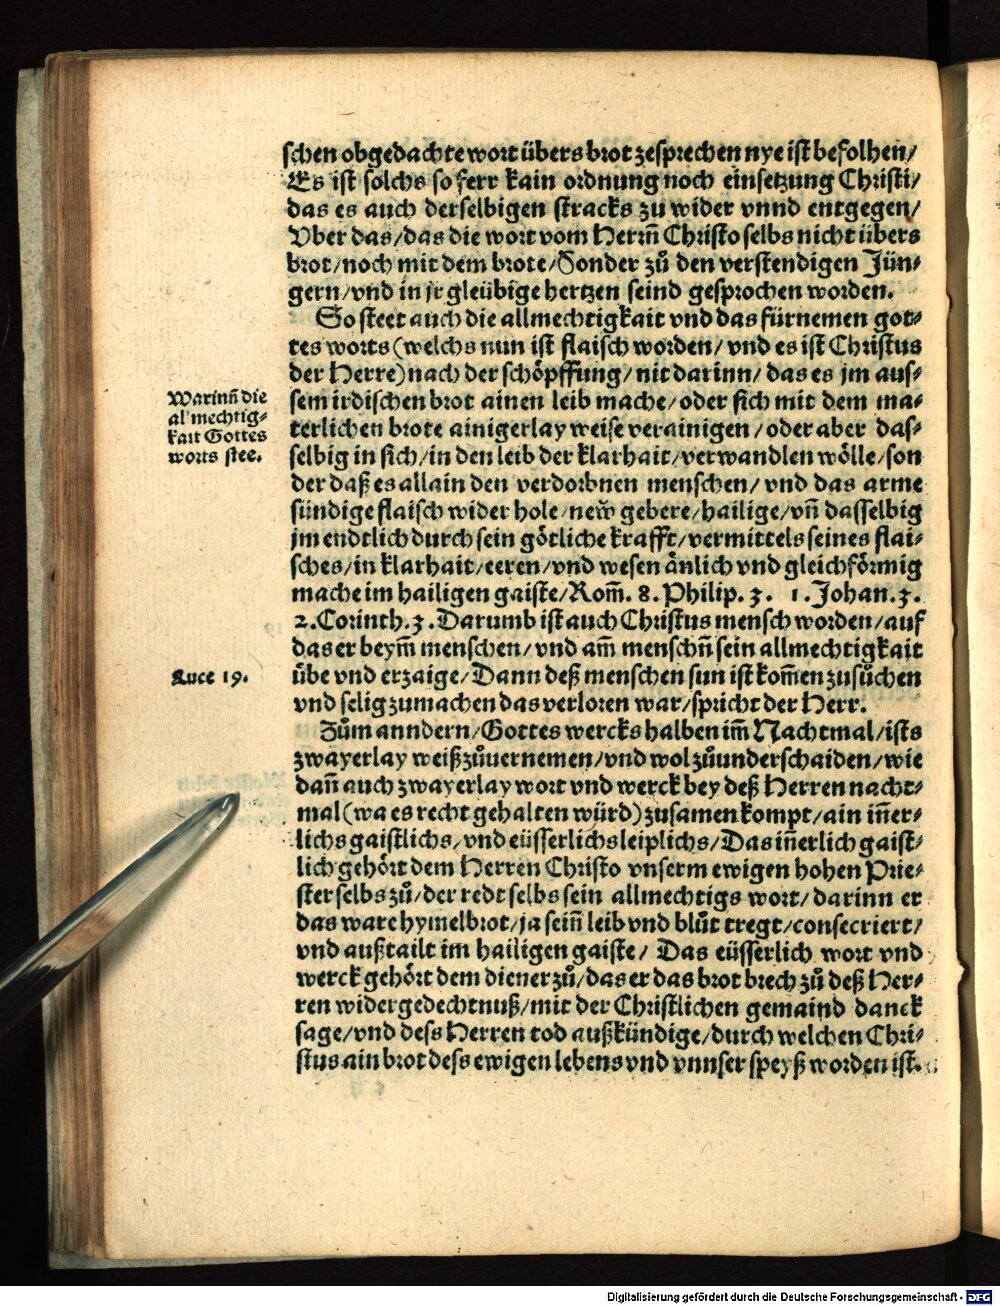 schen obgedachte wort übers brot zesprechen nye ist befolhen/
Es ist solchs so ferr kain ordnung noch einsetzung Christi/
das es auch derselbigen stracks zu wider vnnd entgegen/
Vber das/das die wort vom Herrn̄ Christo selbs nicht übers
brot/noch mit dem brote/Sonder zů den verstendigen Jün⸗
gern/vnd in jr gleübige hertzen seind gesprochen worden.
So steet auch die allmechtigkait vnd das fürnemen got⸗
tes worts (welchs nun ist flaisch worden/ vnd es ist Christus
der Herre) nach der schöpffung/ nit darinn/ das es jm aus⸗
Warinn̄ die
al mechtig⸗
kait Gottes
worts stee.
sem irdischen brot ainen leib mache/oder sich mit dem ma⸗
terlichen brote ainigerlay weise verainigen/oder aber das⸗
selbig in sich/in den leib der klarhait/verwandlen wölle/son
der daß es allain den verdorbnen menschen/ vnd das arme
sündige flaisch wider hole/new gebere/hailige/vn̄ dasselbig
jm endtlich durch sein götliche krafft/vermittels seines flai⸗
sches/in klarhait/eeren/vnd wesen änlich vnd gleichförmig
mache im hailigen gaiste/Rom̄. 8. Philip. 3. 1. Johan. 3.
2. Corinth. 3. Darumb ist auch Christus mensch worden/auf
das er beym̄ menschen/ vnd am̄ menschn̄ sein allmechtigkait
Luce 19.
übe vnd erzaige/Dann deß menschen sun ist kom̄en zusůchen
vnd selig zumachen das verloren war/spricht der Herr.
Zům anndern/Gottes wercks halben im̄ Nachtmal/ists
zwayerlay weiß zůuernemen/vnd wol zůunderschaiden/wie
dan̄ auch zwayerlay wort vnd werck bey deß Herren nacht⸗
mal (wa es recht gehalten würd) zusamen kompt/ain in̄er⸗
lichs gaistlichs/vnd eüsserlichs leiplichs/Das in̄erlich gaist⸗
lich gehört dem Herren Christo vnserm ewigen hohen Prie⸗
ster selbs zů/der redt selbs sein allmechtigs wort/darinn er
das ware hymelbrot/ja sein̄ leib vnd blůt tregt/consecriert/
vnd außtailt im hailigen gaiste/ Das eüsserlich wort vnd
werck gehört dem diener zů/das er das brot brech zů deß Her⸗
ren widergedechtnuß/mit der Christlichen gemaind danck
sage/vnd dess Herren tod außkündige/durch welchen Chri⸗
stus ain brot dess ewigen lebens vnd vnnser speyß worden ist.
Digitalisierung gefördert durch die Deutsche Forschungsgemeinschaft - DFG